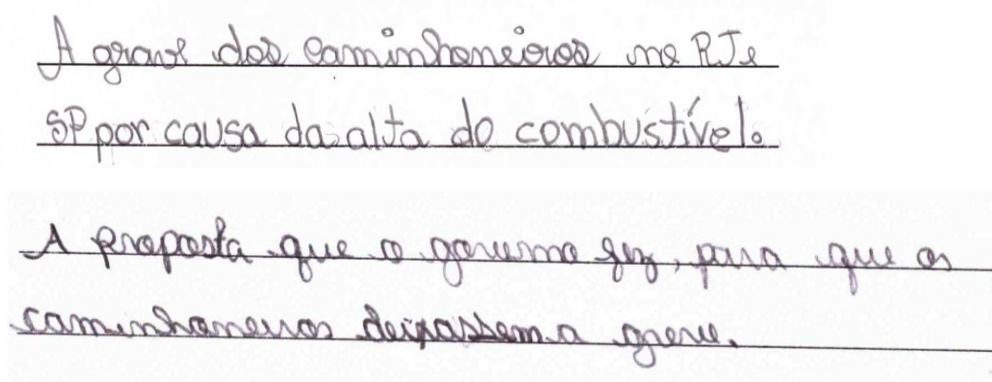 A grave dos caminhoneiros no RJ e
SP por causa da alta do combustível.
A proposta que o governo fez, para que os
caminhoneiros deixassem a greve.